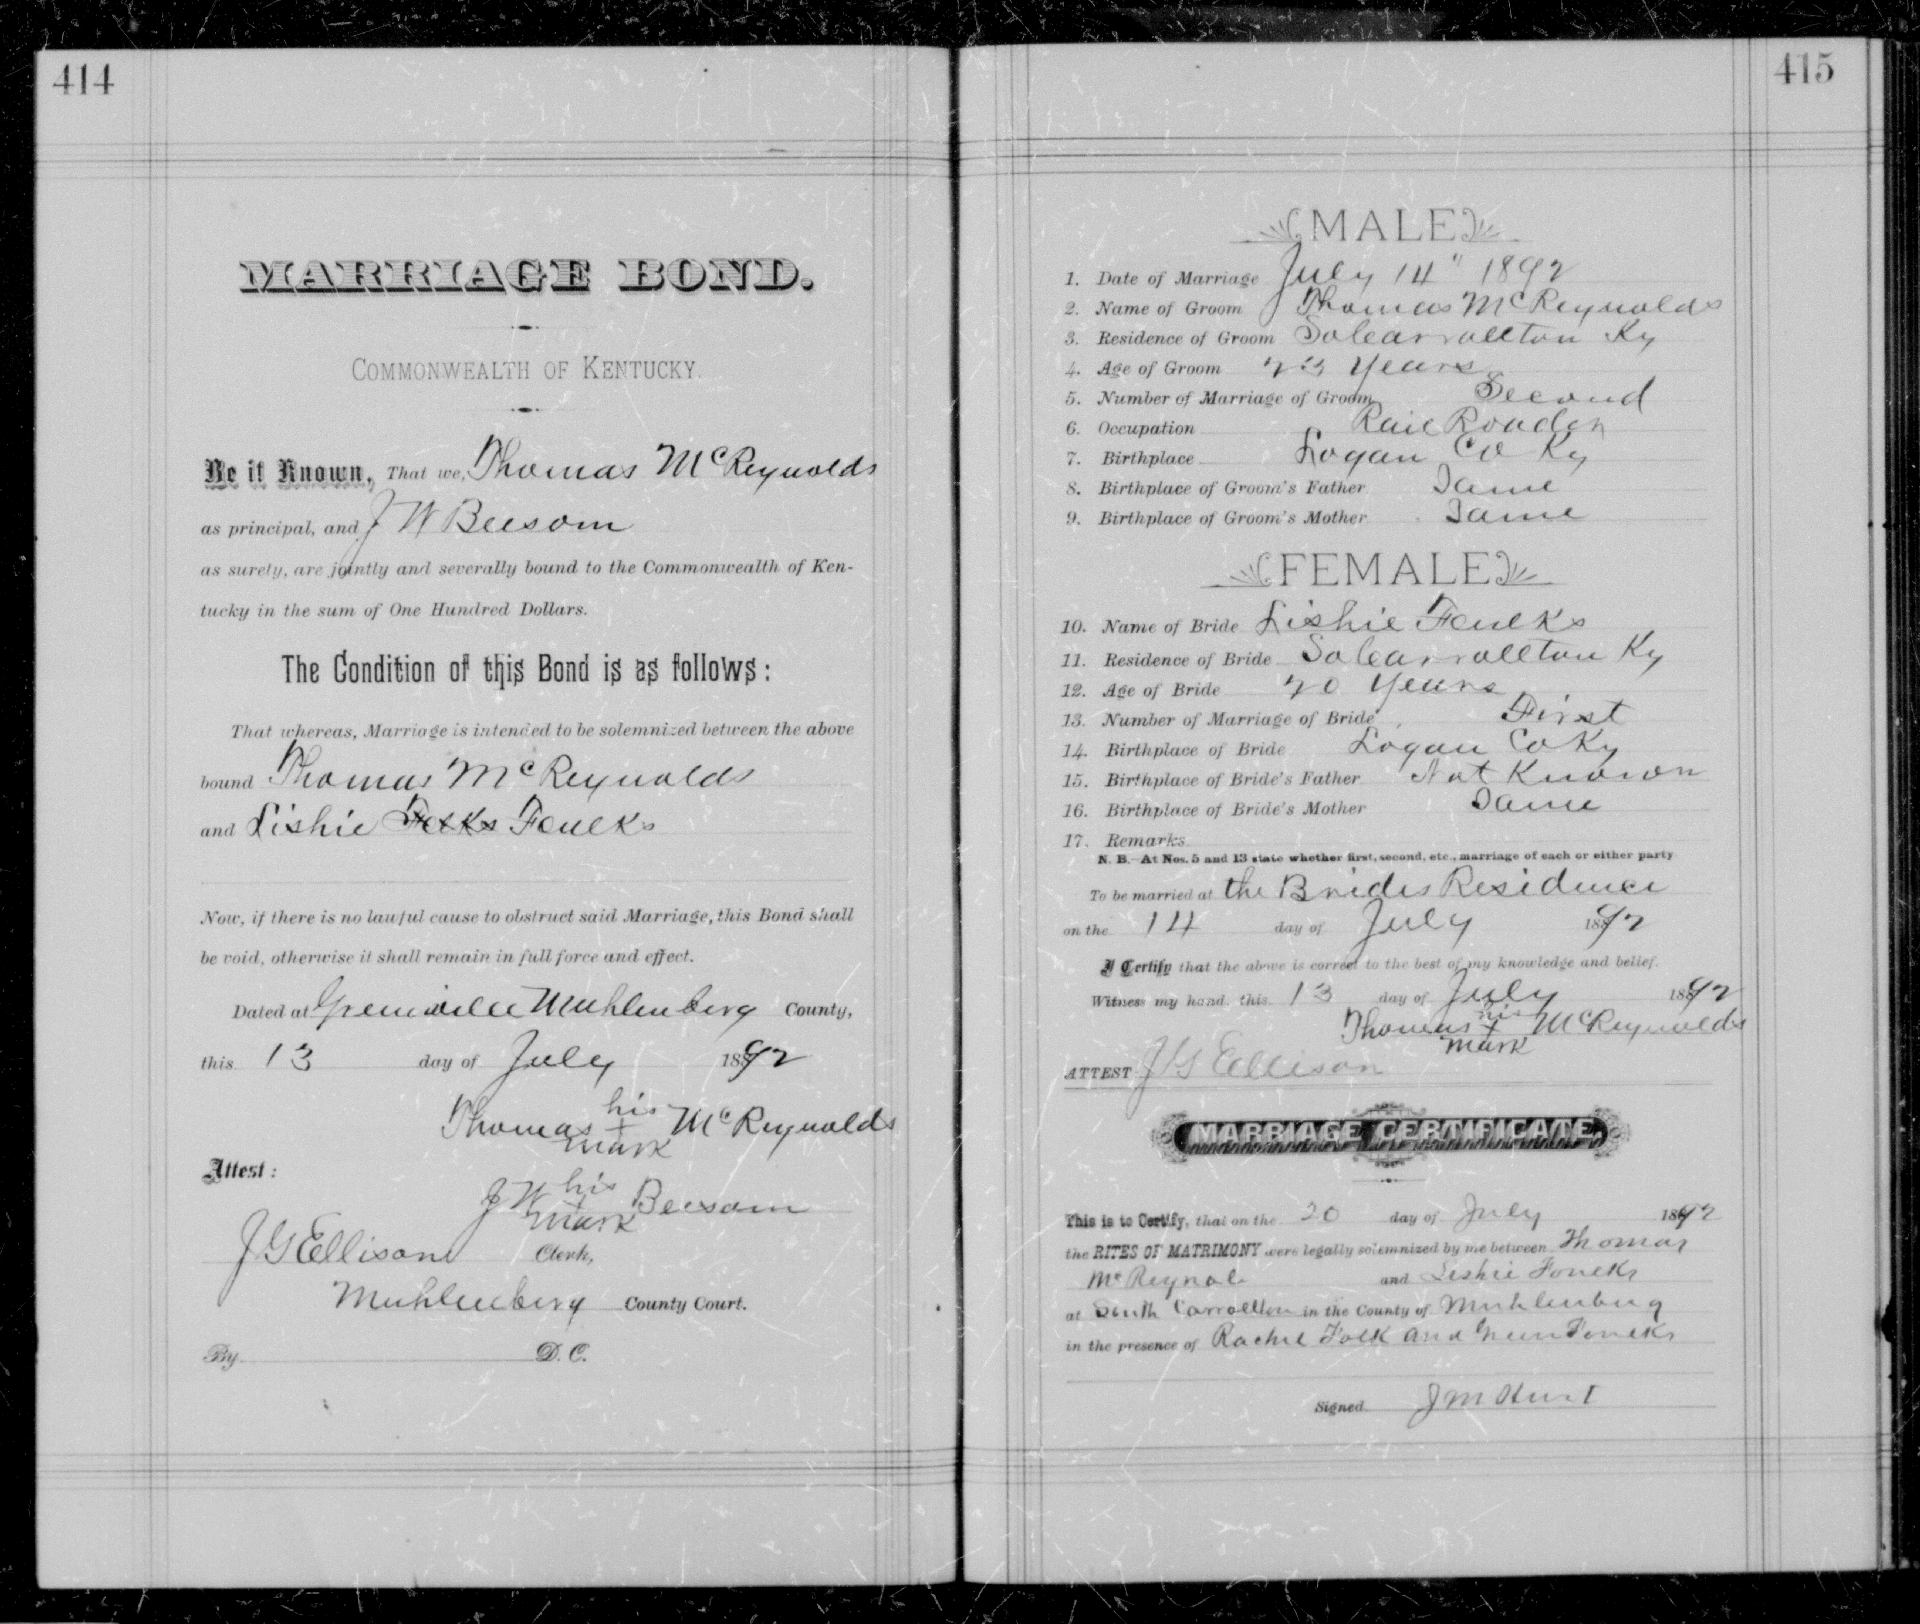 414
MARRIAGE BOND.
COMMONWEALTH OF KENTUCKY.
Be it Known, That we, Thomas McReynolds
as principal, and J W Beesom
as surety, are jointly and severally bound to the Commonwealth of Ken-
tucky in the sum of One Hundred Dollars.
The Condition of this Bond is as follows:
That whereas, Marriage is intended to be solemnized between the above
bound Thomas McReynolds
and Lishie Folks Foulks
Now, if there is no lawful cause to obstruct said Marriage, this Bond shall
be void, otherwise it shall remain in full force and effect.
Dated at Greenville Muhlenberg County,
this 13 day of July 1892
Thomas his + mark McReynolds
Attest:
J W his + mark Beesom
J G Ellison Clerk,
Muhlenberg County Court.
By D. C.
415
MALE
1. Date of Marriage July 14" 1892
2. Name of Groom Thomas McReynolds
3. Residence of Groom So Carrollton Ky
4. Age of Groom 23 Years
5. Number of Marriage of Groom Second
6. Occupation Rail Roader
7. Birthplace Logan Co Ky
8. Birthplace of Groom's Father Same
9. Birthplace of Groom's Mother Same
FEMALE
10. Name of Bride Lishie Foulks
11. Residence of Bride So Carrollton Ky
12. Age of Bride 20 Years
13. Number of Marriage of Bride First
14. Birthplace of Bride Logan Co Ky
15. Birthplace of Bride's Father Not Known
16. Birthplace of Bride's Mother Same
17. Remarks
N. B.—At Nos. 5 and 13 state whether first, second, etc., marriage of each or either party
To be married at the Brides Residence
on the 14 day of July 1892
I Certify that the above is correct to the best of my knowledge and belief.
Witness my hand, this 13 day of July 1892
Thomas his + mark McReynolds
ATTEST J G Ellison
MARRIAGE CERTIFICATE
This is to Certify, that on the 20 day of July 1892
the RITES OF MATRIMONY were legally solemnized by me between Thomas
McReynol and Leshie Foulks
at South Carrollton in the County of Muhlenburg
in the presence of Rachel Folk and Green Foulks
Signed J M Hunt